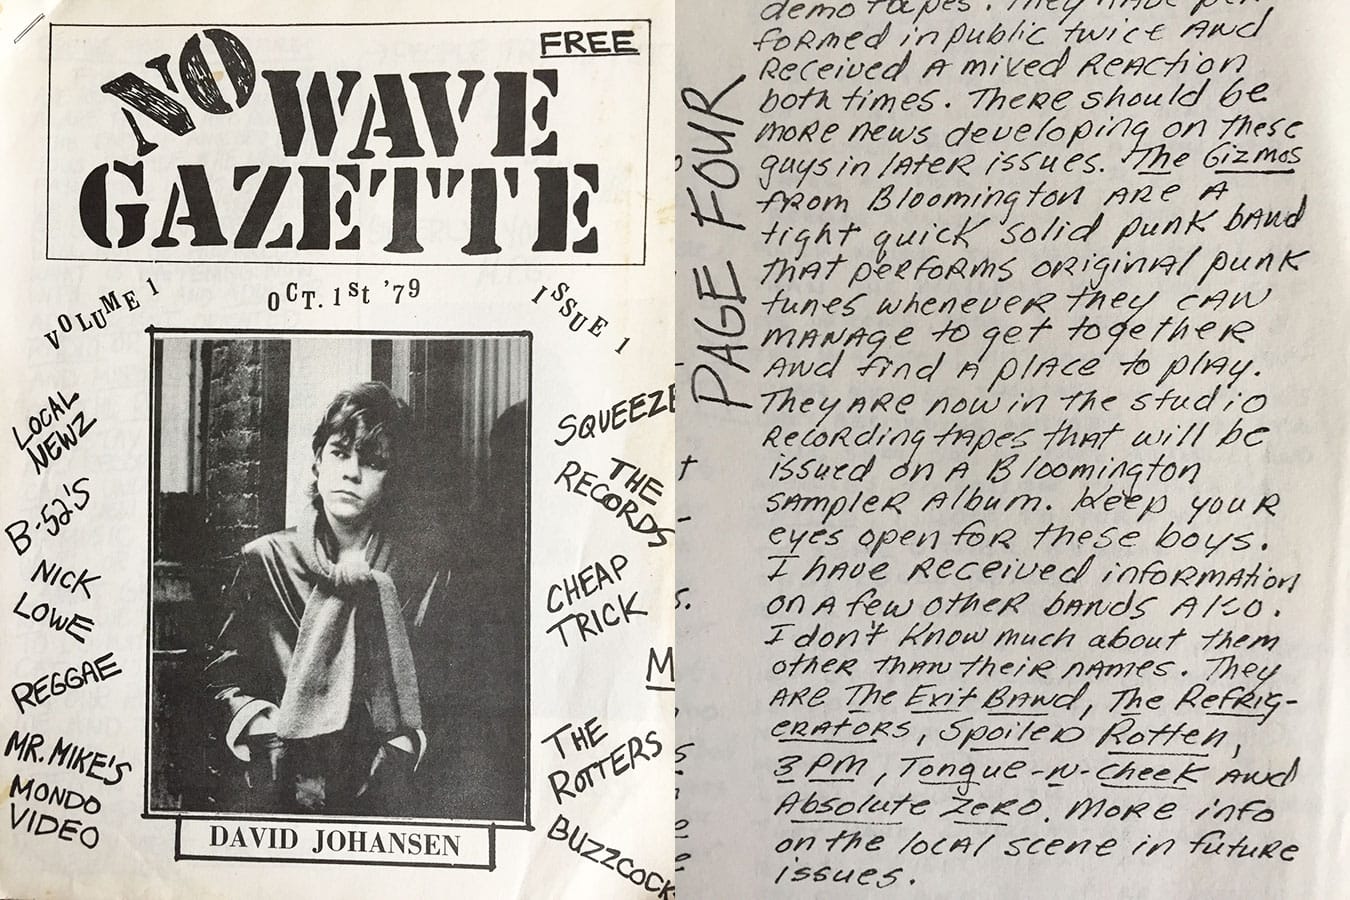 FREE
NO WAVE
GAZETTE
VOLUME 1
OCT. 1st '79
ISSUE 1
LOCAL
NEWZ
B-52'S
NICK
LOWE
REGGAE
MR. MIKE'S
MONDO
VIDEO
SQUEEZE
THE
RECORDS
CHEAP
TRICK
THE
ROTTERS
BUZZCOCK
DAVID JOHANSEN
M
PAGE FOUR
demo tapes. They have per
formed in public twice and
received a mixed reaction
both times. There should be
more news developing on these
guys in later issues. The Gizmos
from Bloomington are a
tight quick solid punk band
that performs original punk
tunes whenever they can
manage to get together
and find a place to play.
They are now in the studio
recording tapes that will be
issued on a Bloomington
sampler album. Keep your
eyes open for these boys.
I have received information
on a few other bands also.
I don't know much about them
other than their names. They
are The Exit Band, The Refrig-
erators, Spoiled Rotten,
3 PM, Tongue-n-Cheek and
Absolute Zero. More info
on the local scene in future
issues.